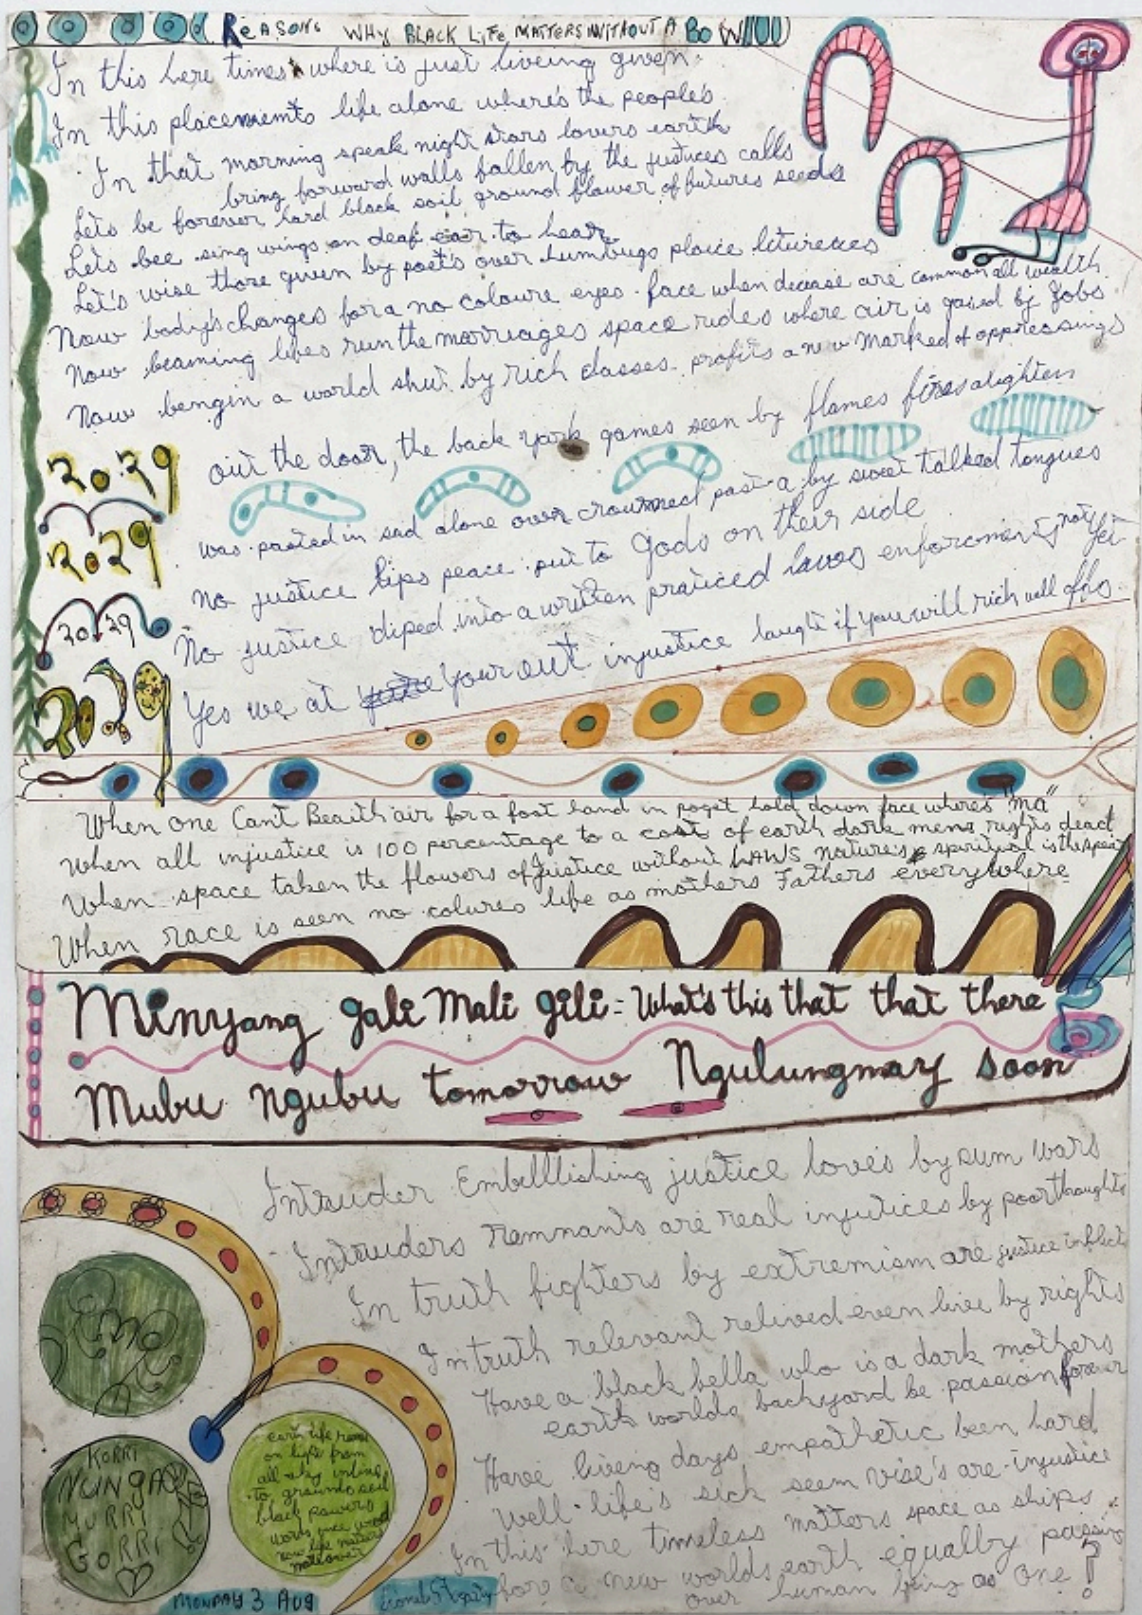 REASONS WHY BLACK LIFE MATTERS WITHOUT A BOW
In this here times where is just liveing given.
In this placements life alone where's the people's
In that morning speak night stars lovers earth
bring forward walls fallen by the justices calls
Lets be forever hard black soil ground flower of futures seeds
Lets bee sing wings on deaf ear to hear
Let's wise those given by poet's over humbugs place
Now body's changes for a no coloure eyes. face when are common all wealth
Now beaming lives run the marriages space rides where air is gased by Jobs
Now bengin a world shut by rich classes profits a new Marked of oppreasings
out the door, the back yark games seen by flames fires alighten
was pasted in sad alone over crowned past a by sweet talked tongues
No justice lips peace put to Gods on their side
No justice diped into a written praticed laws enforcment not yet
Yes we at your out injustice laught if you will rich well offs.
2029
2029
2029
2029
When one Cant Beaith air for a foot hand in poget hold down face wheres "ma"
When all injustice is 100 percentage to a cost of earth dark mens rights dead
When space taken the flowers of justice without LAWS Nature's spiritual is the
When race is seen no colures life as mothers Fathers everywhere
Minyang gali Mali gili = What's this that that there
Mubu ngubu tomorrow Ngulungmay soon
Intruder Embelllishing justice loves by sum wars
Intruders remnants are real injutices by poor thoughts
In truth fighters by extremism are justice inflicts
In truth relevant relived even live by rights
Have a black bella who is a dark mothers
earth worlds backyard be passion forever
Have liveing days empathetic been hard
Well life's sick seem vise's are injustice
In this here timeless matters space as ships
for a new worlds earth equalby passing
over human being as one ?
KORRI
NUNGA
MURRI
GORRI
earth life
on light from
all sky
to ground soil
black powers
MONDAY 3 AUG